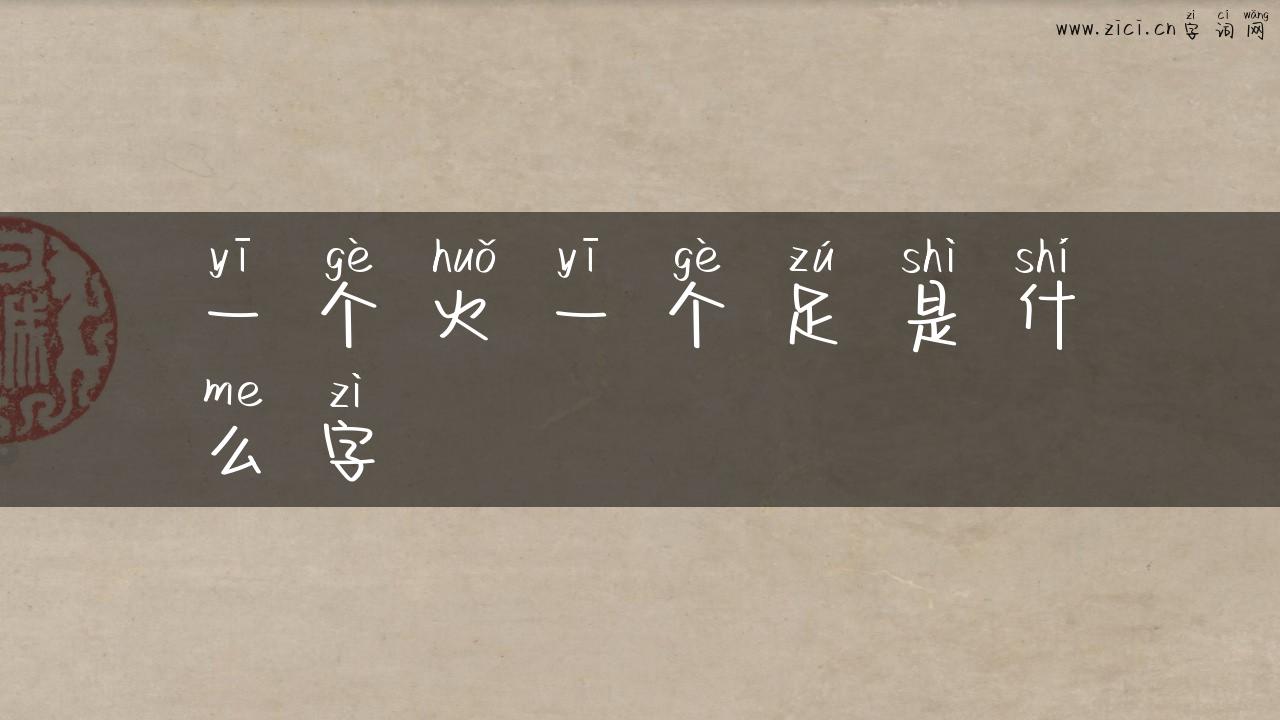 zì cí wǎng
www.zici.cn 字词网
yī gè huǒ yī gè zú shì shí
一个火一个足是什
me zì
么字